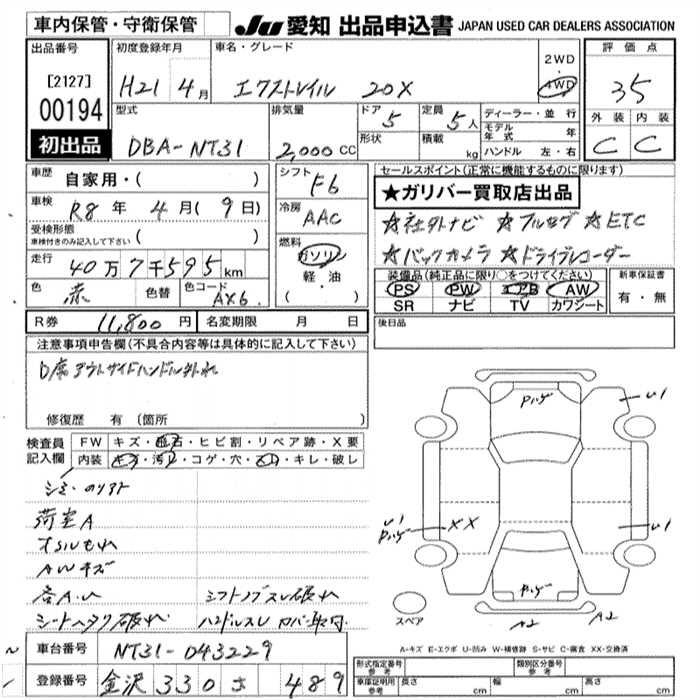 車内保管・守衛保管 JU 愛知 出品申込書 JAPAN USED CAR DEALERS ASSOCIATION
出品番号 [2127] 00194 初出品
初度登録年月 H21年 4月
車名・グレード エクストレイル 20X
2WD 4WD
評価点 3.5
外装 C 内装 C
型式 DBA-NT31
排気量 2,000 CC
ドア 5 形状
定員 5人 積載 kg
ディーラー・並行
モデル年式 年
ハンドル 左・右
車歴 自家用・( )
車検 R8年 4月(9日)
受検形態 車検付きのみ記入して下さい ( )
走行 40万7千595km
色 赤 色替 色コード AX6
シフト F6
冷房 AAC
燃料 ガソリン 軽油 ( )
セールスポイント(正常に機能するものに限ります)
★ガリバー買取店出品
☆社外ナビ ☆フルセグ ☆ETC
☆バックカメラ ☆ドライブレコーダー
装備品(純正品に限り○をつけてください)
PS PW エアB AW
SR ナビ TV カワシート
新車保証書 有・無
R券 11,800円 名変期限 月 日
後日品
注意事項申告欄(不具合内容等は具体的に記入して下さい)
D席アウトサイドハンドル外れ
修復歴 有 (箇所
検査員記入欄
FW キズ・飛石・ヒビ割・リペア跡・X要
内装 キズ・汚れ・コゲ・穴・スレ・キレ・破レ
シミ・のりアト
荷室A
AWキズ
各A.U シフトノブスレ破れ
シートヘタク破れ ハンドルスレ カバー取付
Pハゲ U1
U1 Pハゲ XX U1
Pハゲ
A2 A2
スペア
A-キズ E-エクボ U-凹み W-補修跡 S-サビ C-腐食 XX-交換済
車台番号 NT31-043229
登録番号 金沢 330 さ 489
形式指定番号 参考 類別区分番号 参考
車庫証明用 参考 長さ cm 幅 cm 高さ cm